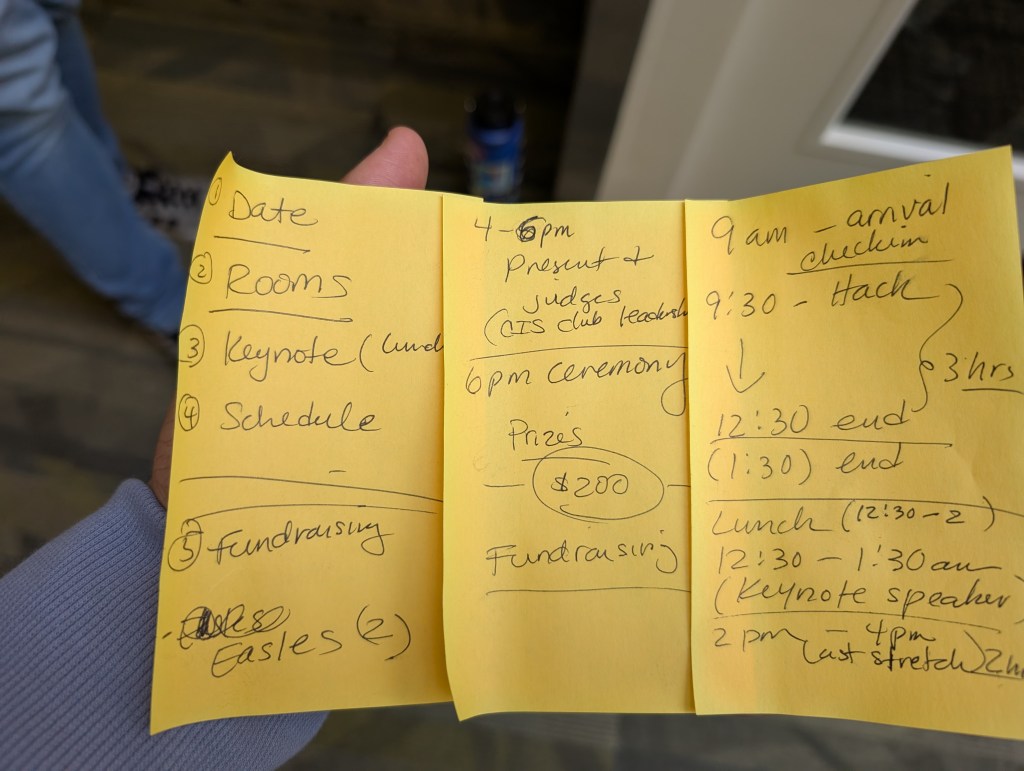 ① Date
② Rooms
③ Keynote (Lund
④ Schedule
⑤ Fundraising
- Easles (2)
4-6pm
Present +
judges
(CIS club leadersh
6pm ceremony
Prizes
$200
Fundraising
9 am - arrival
checkin
9:30 - Hack
3 hrs
12:30 end
(1:30) end
Lunch (12:30-2)
12:30 - 1:30 am
(Keynote speaker
2 pm - 4pm
(last stretch) 2h